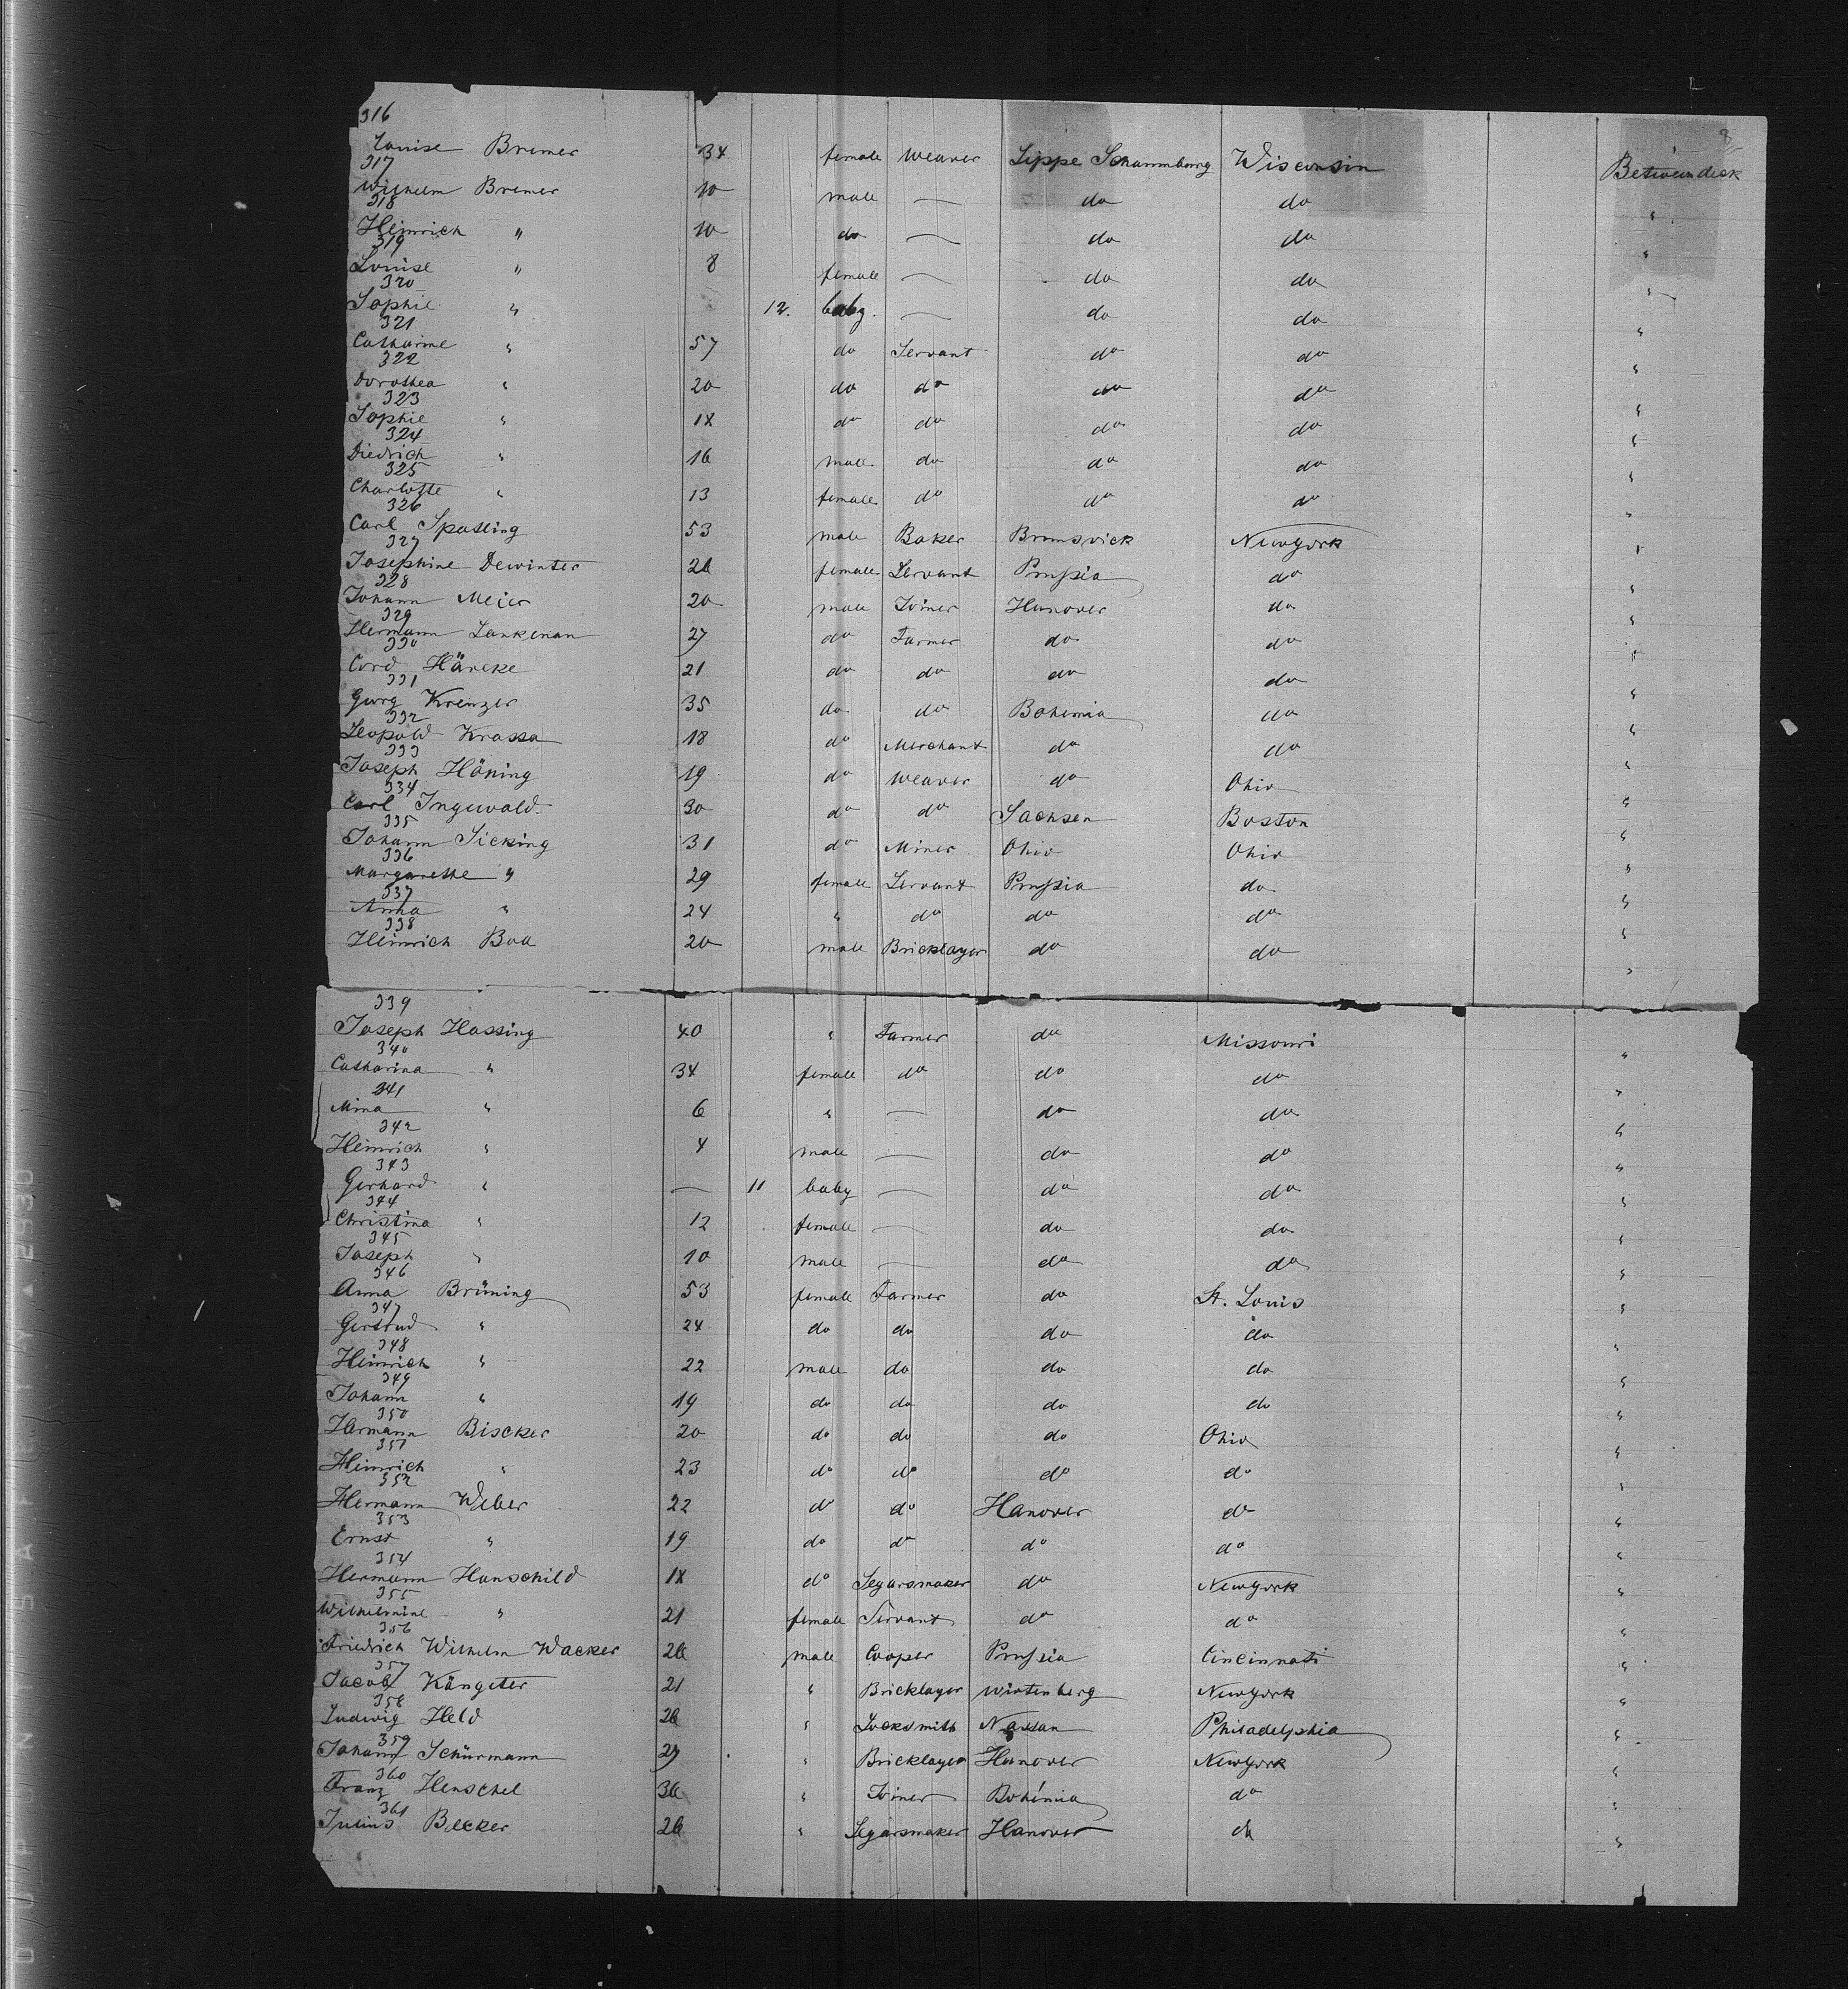 8
316
Louise Bremer 34 female Weaver Lippe Schaumborg Wisconsin Betweendeck
317
Wilhelm Bremer 10 male — do do "
318
Heinrich " 10 do — do do "
319
Louise " 8 female — do do "
320
Sophie " 12. baby. — do do "
321
Catharine " 57 do Servant do do "
322
Dorothea " 20 do do do do "
323
Sophie " 18 do do do do "
324
Diedrich " 16 male do do do "
325
Charlotte " 13 female do do do "
326
Carl Spatling 53 male Baker Brunsvick Newyork "
327
Josephine Dewinter 26 female Servant Prussia do "
328
Johann Meier 20 male Joiner Hanover do "
329
Hermann Lankenau 27 do Farmer do do "
330
Cord Häncke 21 do do do do "
331
Georg Kreuzer 35 do do Bohemia do "
332
Leopold Krassa 18 do Merchant do do "
333
Joseph Höning 19 do Weaver do Ohio "
334
Carl Inguvald 30 do do Sachsen Boston "
335
Johann Sicking 31 do Miner Ohio Ohio "
336
Margarethe " 29 female Servant Prussia do "
337
Anna " 24 " do do do "
338
Heinrich Boll 20 male Bricklayer do do "
339
Joseph Hassing 40 " Farmer do Missouri "
340
Catharina " 34 female do do do "
341
Mina " 6 " — do do "
342
Heinrich " 4 male — do do "
343
Gerhard " — 11 baby — do do "
344
Christina " 12 female — do do "
345
Joseph " 10 male — do do "
346
Anna Brüning 53 female Farmer do St. Louis "
347
Gertrud " 24 do do do do "
348
Heinrich " 22 male do do do "
349
Johann " 19 do do do do "
350
Hermann Biscker 20 do do do Ohio "
351
Heinrich " 23 do do do do "
352
Hermann Weber 22 do do Hanover do "
353
Ernst " 19 do do do do "
354
Hermann Hanschild 18 do Segarsmaker do Newyork "
355
Wilhelmine " 21 female Servant do do "
356
Friedrich Wilhelm Wacker 26 male Cooper Prussia Cincinnati "
357
Jacob Kängeter 21 " Bricklayer Wirtenberg Newyork "
358
Ludwig Held 26 " Locksmith Nassau Philadelphia "
359
Johann Schürmann 27 " Bricklayer Hanover Newyork "
360
Franz Henschel 36 " Joiner Bohémia do "
361
Julius Becker 26 " Segarsmaker Hanover do "